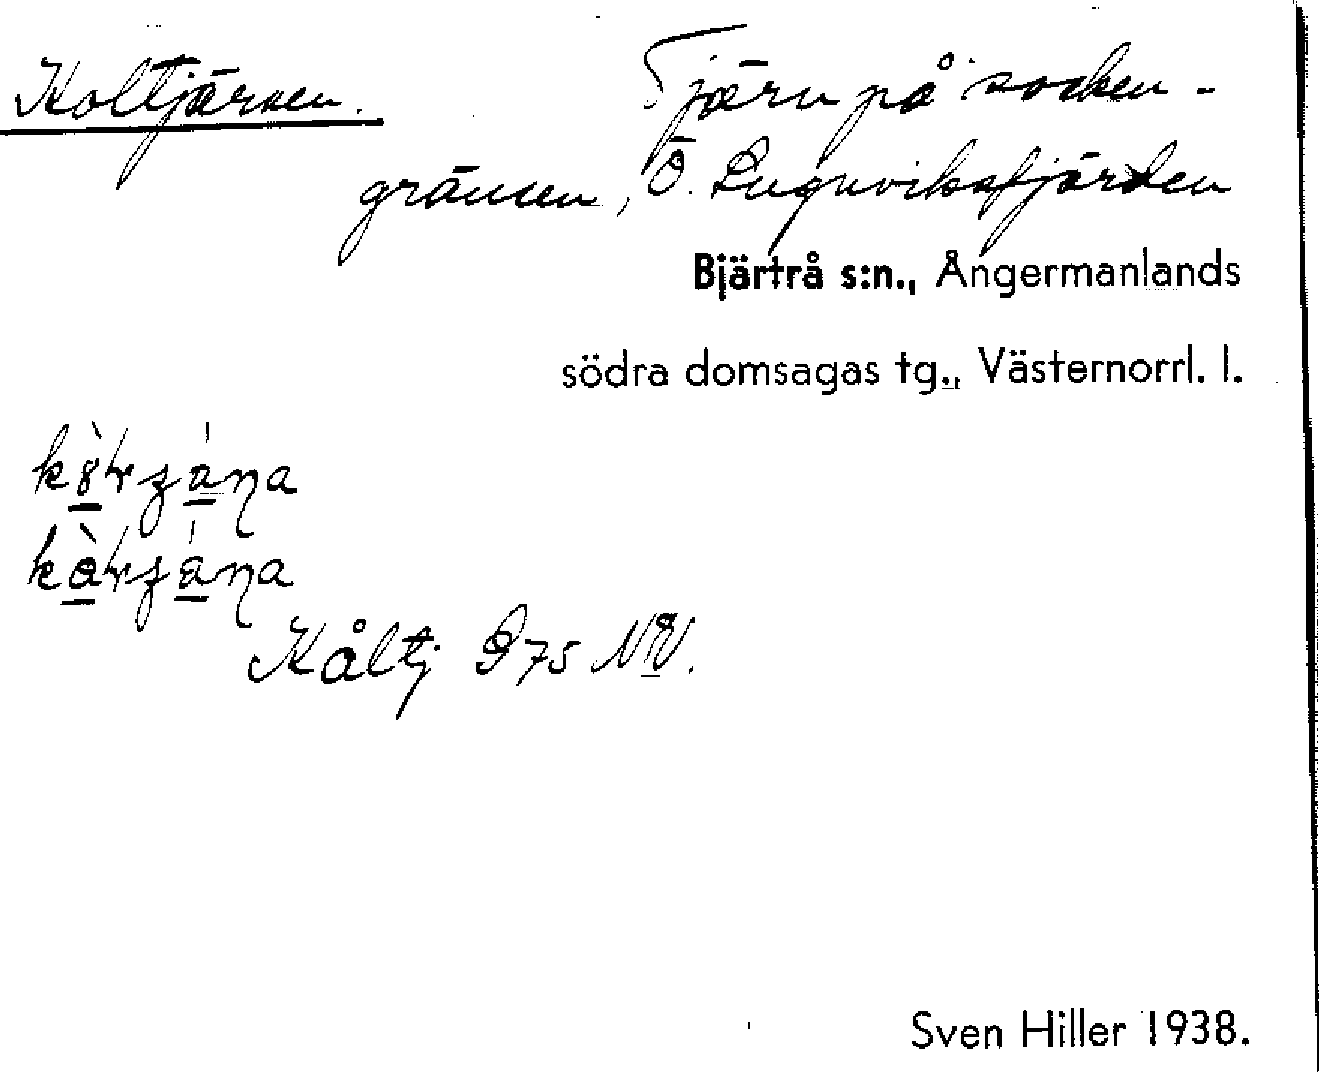 Koltjärnen.
Tjärn på socken-
gränsen, Ö. Lugnviksfjärden
Bjärtrå s:n., Ångermanlands
södra domsagas tg., Västernorrl. l.
Kåltj 975 NV.
Sven Hiller 1938.